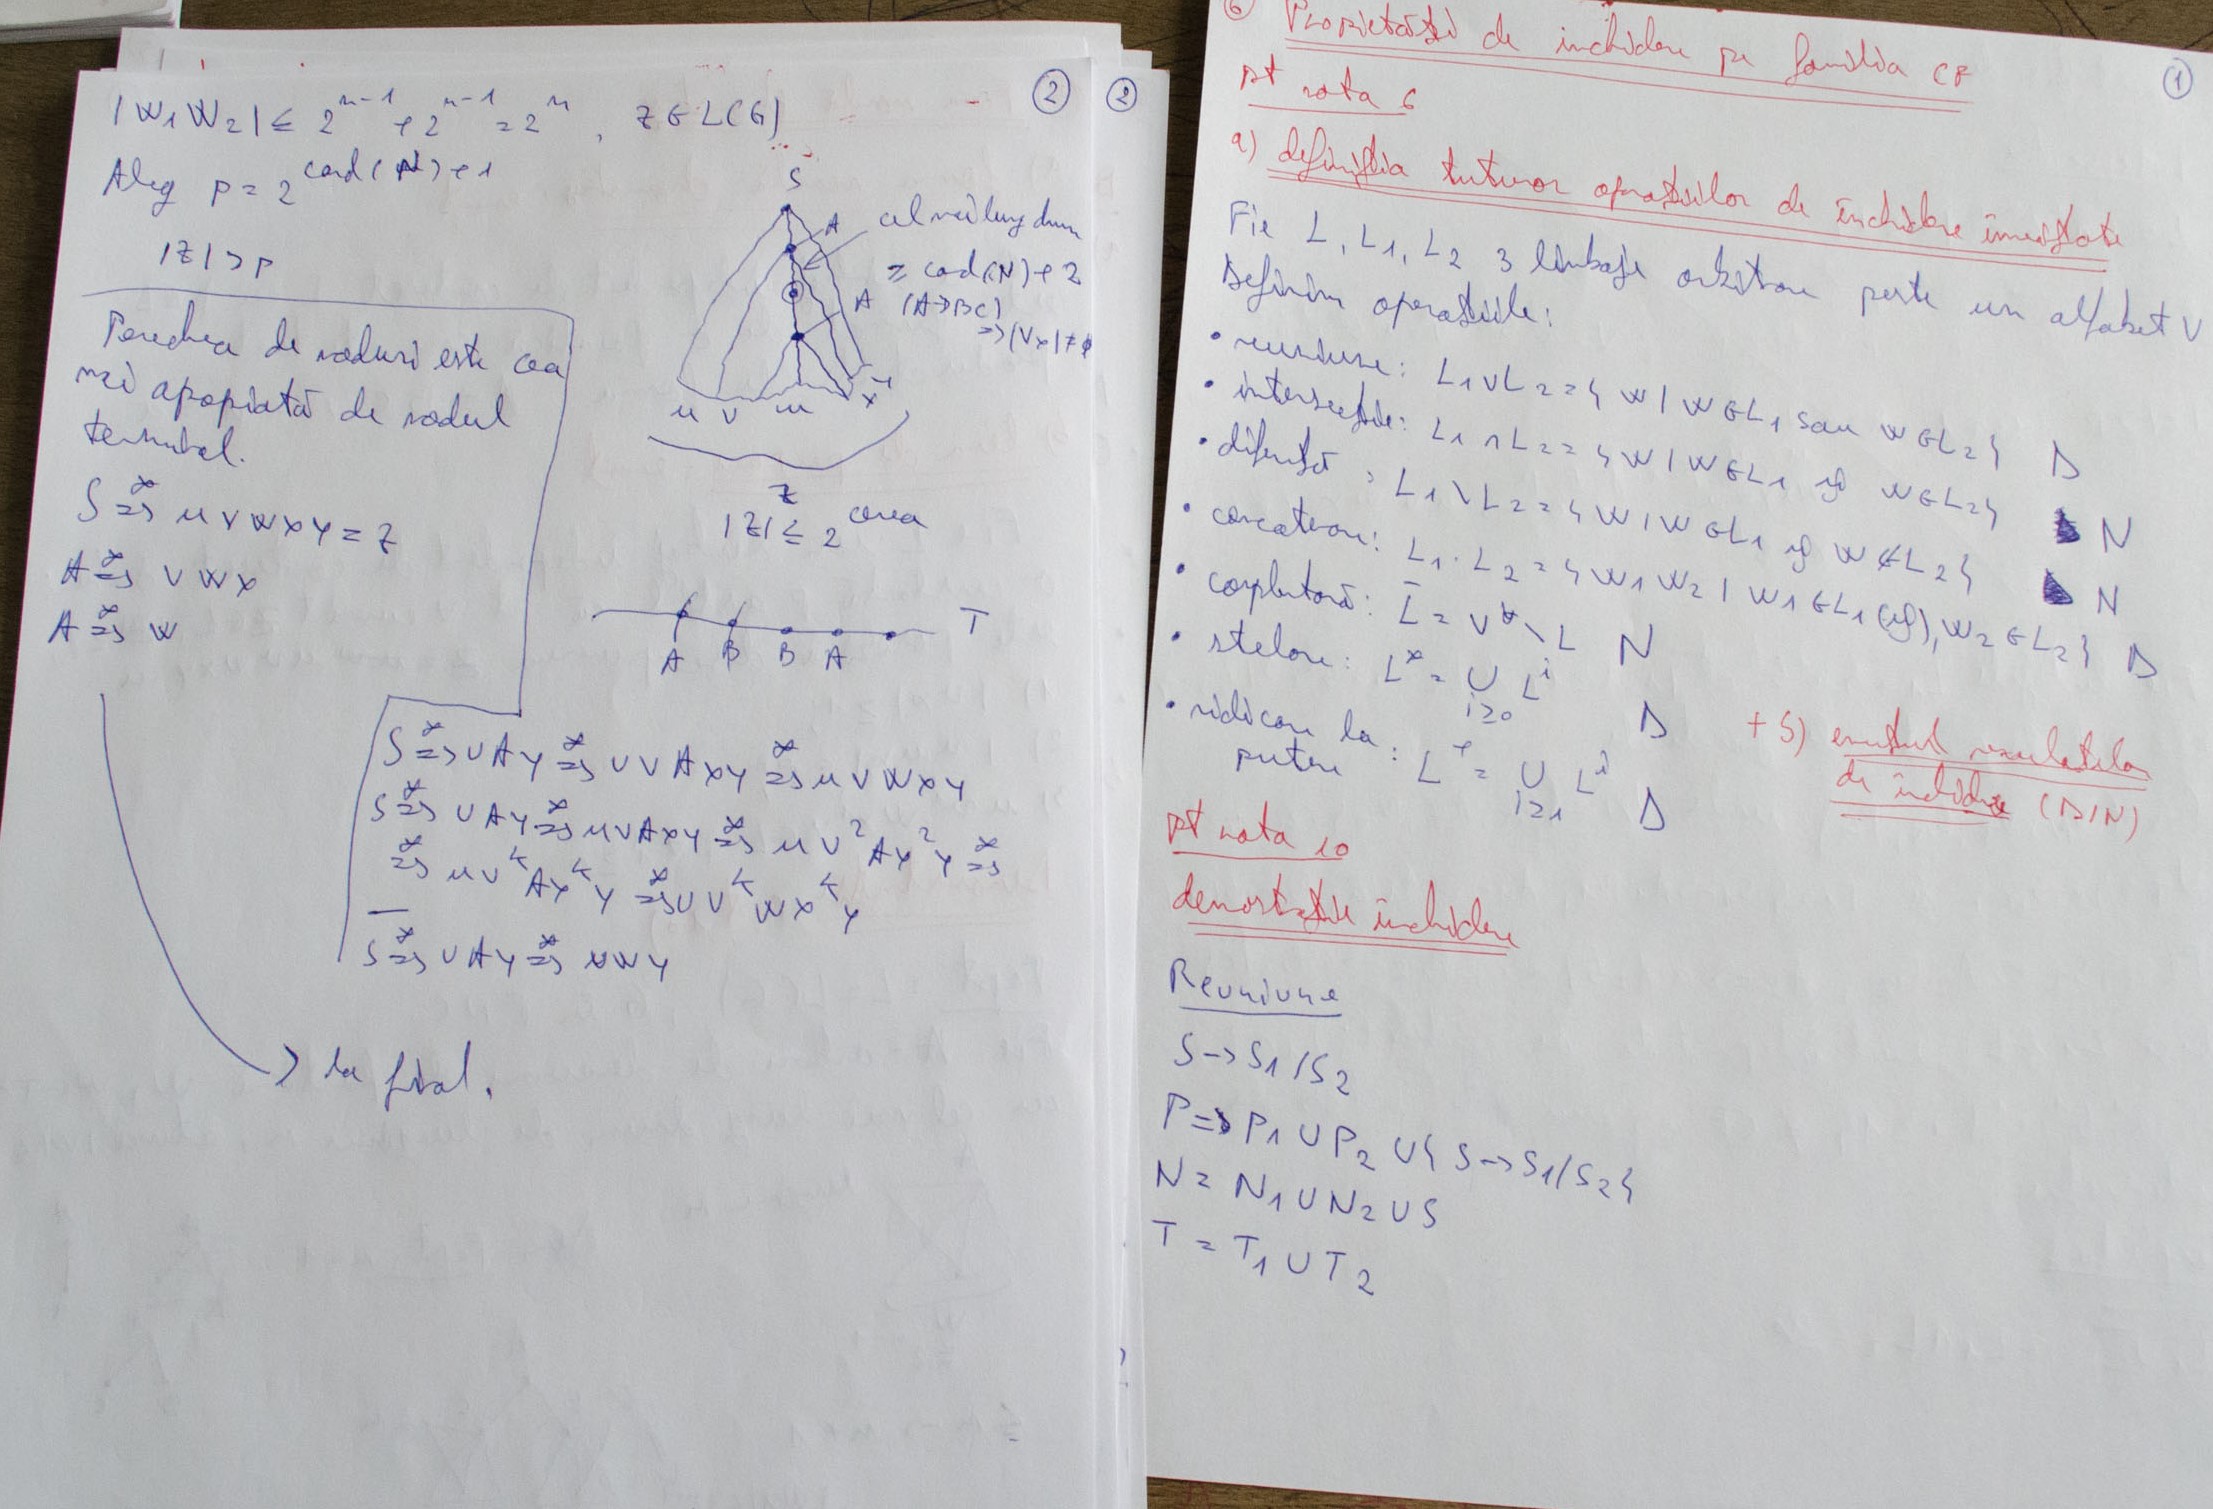 2
|W₁W₂| ≤ 2ⁿ⁻¹ + 2ⁿ⁻¹ = 2ⁿ, z ∈ L(G)
Aleg p = 2^(card(N)+1)
|z| > p
Perechea de noduri este cea
mai apropiată de nodul
terminal.
S ⇒* uvwxy = z
A ⇒* vwx
A ⇒* w
S
A
cel mai lung drum
= card(N) + 2
A (A→BC)
⇒ |vx| ≠ ϕ
u v w x y
z
|z| ≤ 2^ceva
A B B A T
S ⇒* uAy ⇒* uvAxy ⇒* uvwxy
S ⇒* uAy ⇒* uvAxy ⇒* uv²Ax²y ⇒*
⇒* uvᵏAxᵏy ⇒* uvᵏwxᵏy
S ⇒* uAy ⇒* uwy
→ la final.
2
1
6 Proprietăți de închidere pe familia CF
pt nota 6
a) definiția tuturor operațiilor de închidere învățate
Fie L, L₁, L₂ 3 limbaje arbitrare peste un alfabet V
Definim operațiile:
• reuniune: L₁∪L₂ = {w | w∈L₁ sau w∈L₂} D
• intersecție: L₁∩L₂ = {w | w∈L₁ și w∈L₂} N
• diferență: L₁\L₂ = {w | w∈L₁ și w∉L₂} N
• concatenare: L₁·L₂ = {w₁w₂ | w₁∈L₁ (și), w₂∈L₂} D
• complementară: L̄ = V* \ L N
• stelare: L* = ∪ i≥0 Lⁱ D
• ridicare la
putere: L⁺ = ∪ i≥1 Lⁱ D
+ S) enunțul rezultatelor
de închidere (D/N)
pt nota 10
demonstrație închidere
Reuniune
S → S₁/S₂
P ⇒ P₁ ∪ P₂ ∪ {S → S₁/S₂}
N = N₁ ∪ N₂ ∪ S
T = T₁ ∪ T₂